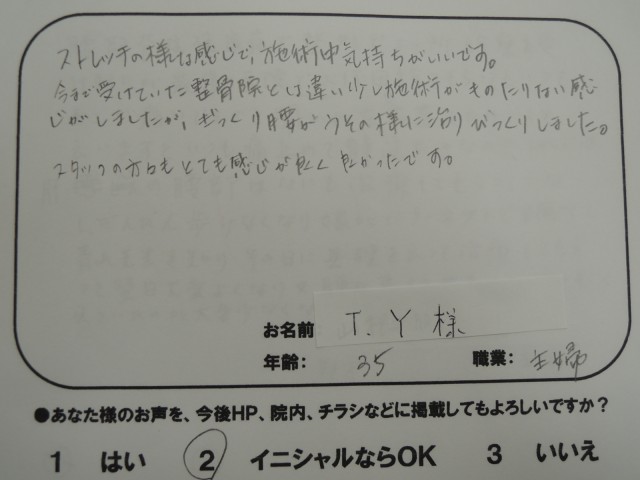 ストレッチの様な感じで、施術中気持ちがいいです。
今まで受けていた整骨院とは違い少し施術がものたりない感
じがしましたが、ぎっくり腰がうその様に治りびっくりしました。
スタッフの方もとても感じが良く良かったです。
お名前 T.Y様
年齢: 35 職業: 主婦
●あなた様のお声を、今後HP、院内、チラシなどに掲載してもよろしいですか?
1 はい 2 イニシャルならOK 3 いいえ